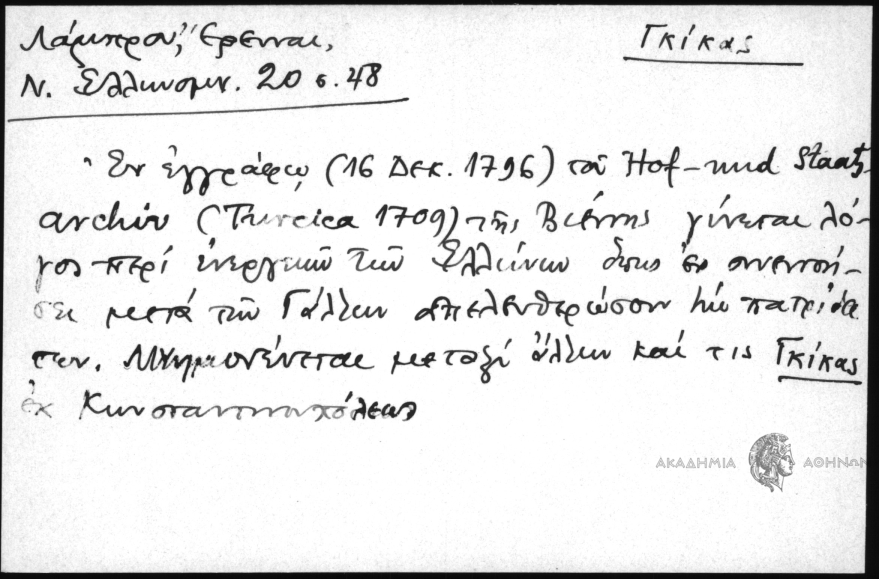 Λάμπρου, Ἔρευναι,
Γκίκας
Ν. Ἑλληνομν. 20 σ. 48
Ἐν ἐγγράφῳ (16 Δεκ. 1796) τοῦ Hof-und Staats-
archiv (Turcica 1709) τῆς Βιέννης γίνεται λό-
γος περί ἐνεργειῶν τῶν Ἑλλήνων ὅπως ἐν συνεννοή-
σει μετά τῶν Γάλλων ἀπελευθερώσουν τήν πατρίδα
των. Μνημονεύεται μεταξύ ἄλλων καί τις Γκίκας
ἐκ Κωνσταντινουπόλεως
ΑΚΑΔΗΜΙΑ ΑΘΗΝΩΝ